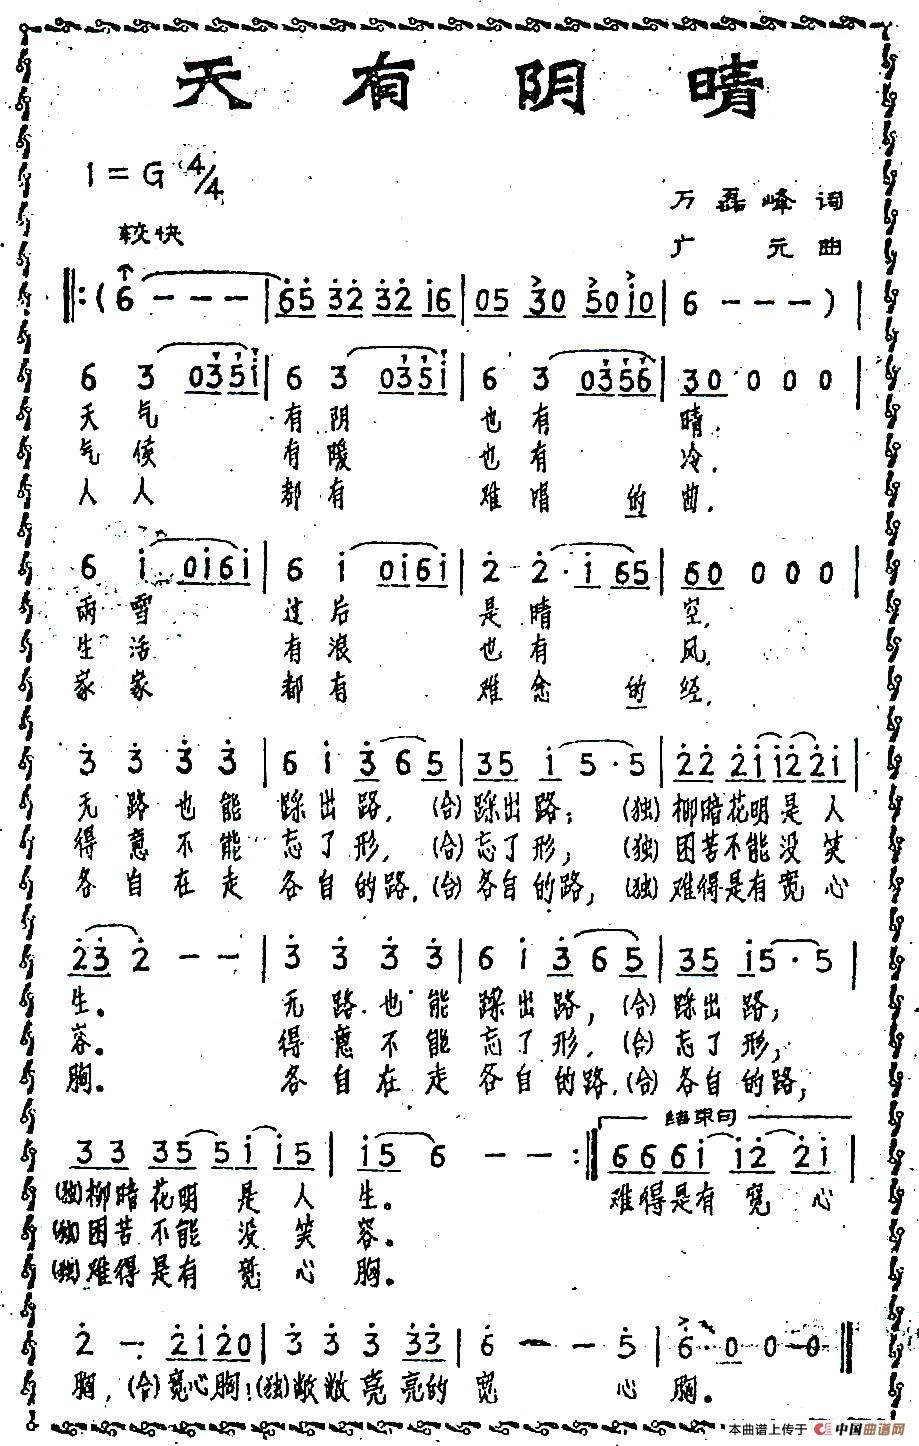 天有阴晴
1=G 4/4
万磊峰 词
较快
广元 曲
‖:(6 - - - | 65 32 32 16 | 05 30 50 10 | 6 - - -) |
6 3 0351 | 6 3 0351 | 6 3 0356 | 30 0 0 0 |
天气 有阴 也有 晴.
气候 有暖 也有 冷.
人人 都有 难唱的曲.
6 1 0161 | 6 1 0161 | 2 2·1 65 | 60 0 0 0 |
雨雪 过后 是晴 空,
生活 有浪 也有 风,
家家 都有 难念的经,
3 3 3 3 | 6 1 3 6 5 | 35 1 5·5 | 22 21 12 21 |
无路也能 踩出路,(合)踩出路;(独)柳暗花明是人
得意不能 忘了形,(合)忘了形;(独)困苦不能没笑
各自在走 各自的路.(合)各自的路,(独)难得是有宽心
23 2 - - | 3 3 3 3 | 6 1 3 6 5 | 35 15·5 |
生。 无路也能 踩出路,(合)踩出路;
容。 得意不能 忘了形.(合)忘了形;
胸。 各自在走 各自的路.(合)各自的路;
结束句
33 35 51 15 | 15 6 - - :‖ 66 61 12 21 |
(独)柳暗花明是人生。 难得是有宽心
(独)困苦不能没笑容。
(独)难得是有宽心胸。
2 - 21 20 | 3 3 3 33 | 6 - - 5 | 6·0 0 0 ‖
胸,(合)宽心胸!(独)敞敞亮亮的宽心胸。
本曲谱上传于 中国曲谱网